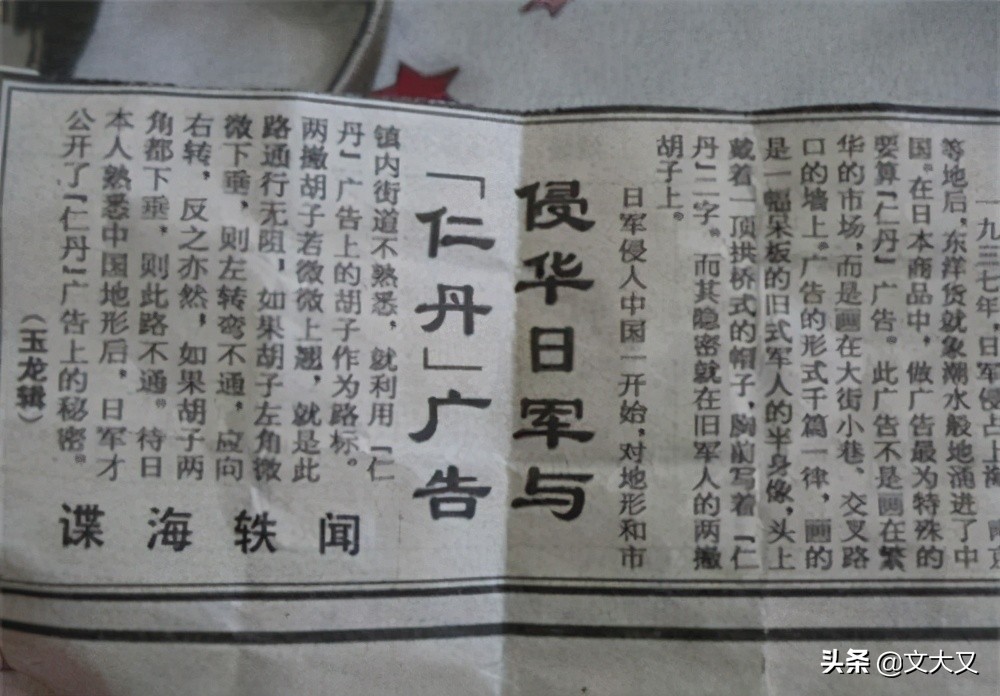 一九三七年，日军侵占上海、南京
等地后，东洋货就象潮水般地涌进了中
国。在日本商品中，做广告最为特殊的
要算「仁丹」广告。此广告不是画在繁
华的市场，而是画在大街小巷、交叉路
口的墙上。广告的形式千篇一律，画的
是一幅呆板的旧式军人的半身像，头上
戴着一顶拱桥式的帽子，胸前写着「仁
丹」二字。而其隐密就在旧军人的两撇
胡子上。
日军侵人中国一开始，对地形和市
侵华日军与
「仁丹」广告
镇内街道不熟悉，就利用「仁
丹」广告上的胡子作为路标。
两撇胡子若微微上翘，就是此
路通行无阻，如果胡子左角微
微下垂，则左转弯不通，应向
右转，反之亦然，如果胡子两
角都下垂，则此路不通。待日
本人熟悉中国地形后，日军才
公开了「仁丹」广告上的秘密。
（玉龙辑）
谍海轶闻
头条 @文大又